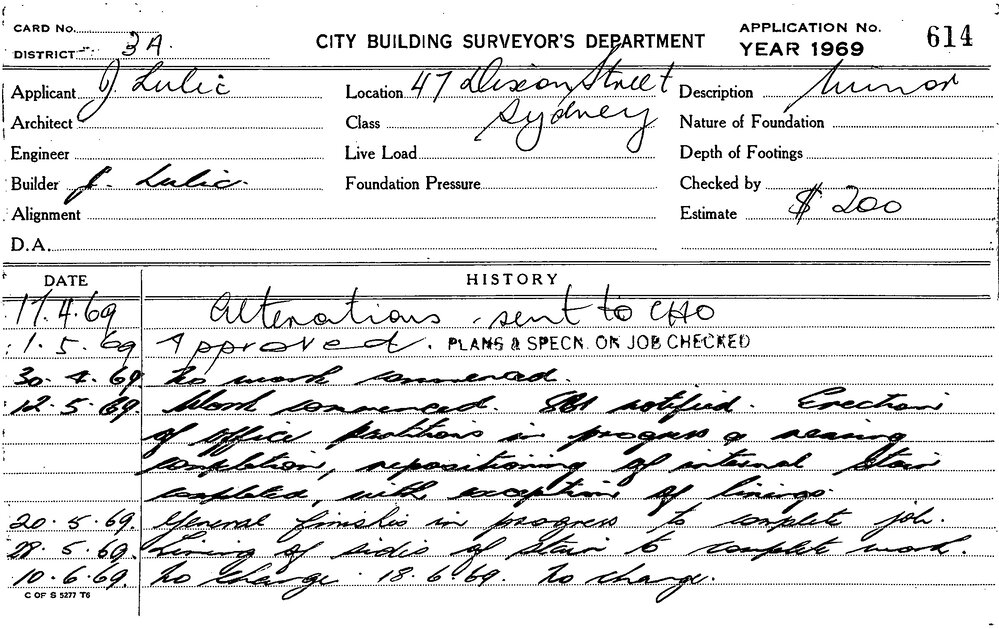 CARD No.
DISTRICT 3A.
CITY BUILDING SURVEYOR'S DEPARTMENT
APPLICATION No. 614
YEAR 1969
Applicant J Lulic
Location 47 Dixon Street
Sydney
Description Minor
Architect
Class
Nature of Foundation
Engineer
Live Load
Depth of Footings
Builder J. Lulic.
Foundation Pressure
Checked by
Alignment
Estimate $ 200
D.A.
DATE HISTORY
17.4.69 Alterations sent to CHO
1.5.69 Approved. PLANS & SPECN. ON JOB CHECKED
30.4.69 No work commenced.
12.5.69 Work commenced. notified. Erection
of office partitions in progress & nearing
completion, repositioning of internal stair
completed, with exception of linings.
20.5.69. General finishis in progress to complete job.
28.5.69. Lining of sides of stair to complete work.
10.6.69. No change. 18.6.69. No change.
C OF S 5277 T6